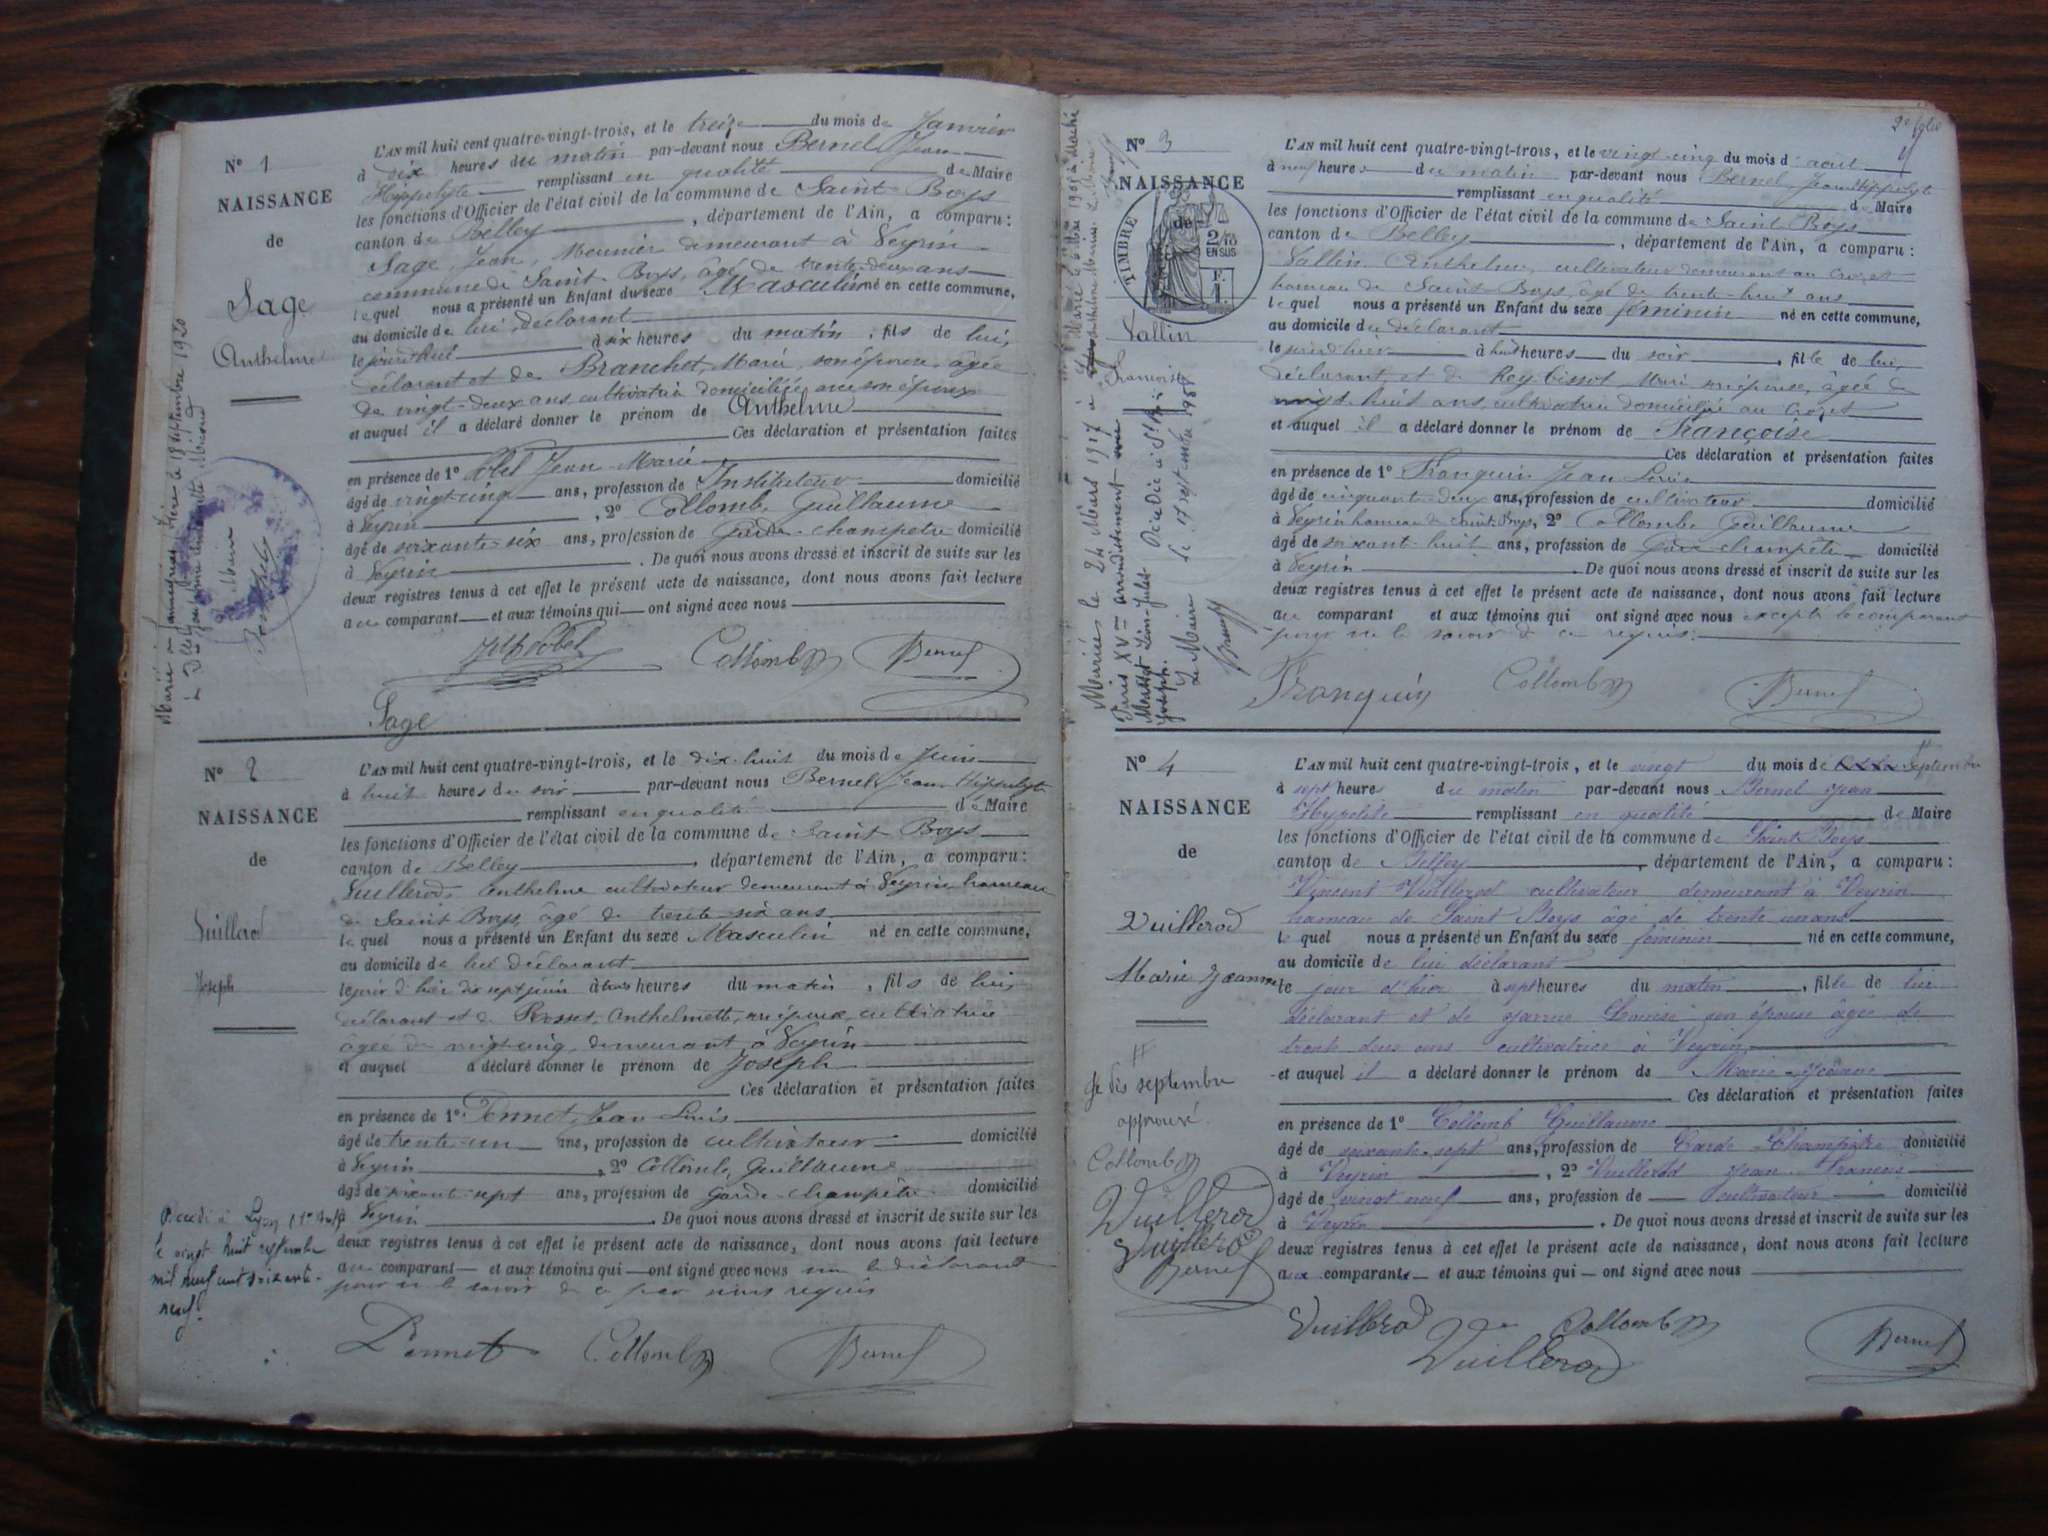 N° 1
NAISSANCE
de
Sage
Anthelme
L'AN mil huit cent quatre-vingt-trois, et le treize du mois de Janvier
à dix heures du matin par-devant nous Bernel Jean
Hippolyte remplissant en qualité de Maire
les fonctions d'Officier de l'état civil de la commune de Saint Boys
canton de Belley, département de l'Ain, a comparu :
Sage Jean, Meunier demeurant à Veyrin
commune de Saint Boys, âgé de trente-deux ans
lequel nous a présenté un Enfant du sexe Masculin né en cette commune,
au domicile de lui déclarant
le jourd'hui à six heures du matin, fils de lui,
déclarant et de Branchet, Marie, son épouse, âgée
de vingt-deux ans, cultivatrice domiciliée avec son époux
et auquel il a déclaré donner le prénom de Anthelme
Ces déclaration et présentation faites
en présence de 1° Jean Marie
âgé de vingt-cinq ans, profession de Instituteur domicilié
à Veyrin, 2° Collomb, Guillaume
âgé de soixante-six ans, profession de Garde-champêtre domicilié
à Veyrin. De quoi nous avons dressé et inscrit de suite sur les
deux registres tenus à cet effet le présent acte de naissance, dont nous avons fait lecture
au comparant et aux témoins qui ont signé avec nous
Collomb Bernel
Sage
Marié à le 18 septembre 1920
Le Maire
N° 2
NAISSANCE
de
Vuillerod
Joseph
L'AN mil huit cent quatre-vingt-trois, et le dix-huit du mois de Juin
à huit heures du soir par-devant nous Bernel, Jean Hippolyte
remplissant en qualité de Maire
les fonctions d'Officier de l'état civil de la commune de Saint Boys
canton de Belley, département de l'Ain, a comparu :
Vuillerod, Anthelme cultivateur demeurant à Veyrin hameau
de Saint Boys, âgé de trente-six ans
lequel nous a présenté un Enfant du sexe Masculin né en cette commune,
au domicile de lui déclarant
le jour d'hier dix sept juin à heures du matin, fils de lui,
déclarant et de Rosset, Anthelmette, son épouse, cultivatrice
âgée de vingt-cinq, demeurant à Veyrin
et auquel a déclaré donner le prénom de Joseph
Ces déclaration et présentation faites
en présence de 1° Pennet, Jean Louis
âgé de trente-un ans, profession de cultivateur domicilié
à Veyrin, 2° Collomb, Guillaume
âgé de soixant-sept ans, profession de Garde-champêtre domicilié
à Veyrin. De quoi nous avons dressé et inscrit de suite sur les
deux registres tenus à cet effet le présent acte de naissance, dont nous avons fait lecture
au comparant et aux témoins qui ont signé avec nous non le déclarant
pour ne le savoir de ce par nous requis
Décédé à Lyon
le vingt huit septembre
mil neuf cent soixante-
neuf.
Pennet Collomb Bernel
2e folio
N° 3
NAISSANCE
de
TIMBRE
2/10
EN SUS
F.
1.
Vallin
Françoise
L'AN mil huit cent quatre-vingt-trois, et le vingt-cinq du mois d'août
à neuf heures du matin par-devant nous Bernel, Jean Hippolyte
remplissant en qualité de Maire
les fonctions d'Officier de l'état civil de la commune de Saint Boys
canton de Belley, département de l'Ain, a comparu :
Vallin, Anthelme, cultivateur demeurant au Crozet
hameau de Saint-Boys, âgé de trente-huit ans
lequel nous a présenté un Enfant du sexe féminin né en cette commune,
au domicile du déclarant
le jourd'hier à huit heures du soir, fille de lui,
déclarant, et de Rey-bissot Marie son épouse, âgée de
vingt-huit ans, cultivatrice domiciliée au Crozet
et auquel il a déclaré donner le prénom de Françoise
Ces déclaration et présentation faites
en présence de 1° Franquin Jean Louis
âgé de cinquante-deux ans, profession de cultivateur domicilié
à Veyrin hameau de Saint-Boys, 2° Collomb Guillaume
âgé de soixant-huit ans, profession de Garde-champêtre domicilié
à Veyrin. De quoi nous avons dressé et inscrit de suite sur les
deux registres tenus à cet effet le présent acte de naissance, dont nous avons fait lecture
au comparant et aux témoins qui ont signé avec nous excepté le comparant
pour ne le savoir de ce requis.
Franquin Collomb Bernel
Mariée le 24 Mars 1917 à
Paris XVe arrondissement
Léon-Jules
Joseph.
Le Maire
Décédée à
le 17 septembre 1958
Le Maire
N° 4
NAISSANCE
de
Vuillerod
Marie Jeanne
L'AN mil huit cent quatre-vingt-trois, et le vingt du mois de Septembre
à sept heures du matin par-devant nous Bernel Jean
Hypolite remplissant en qualité de Maire
les fonctions d'Officier de l'état civil de la commune de Saint Boys
canton de Belley, département de l'Ain, a comparu :
Vincent Vuillerod cultivateur demeurant à Veyrin
hameau de Saint Boys âgé de trente un ans
lequel nous a présenté un Enfant du sexe féminin né en cette commune,
au domicile de lui déclarant
le jour d'hier à sept heures du matin, fille de lui
déclarant et de Louise son épouse âgée de
trente deux ans cultivatrice à Veyrin
et auquel il a déclaré donner le prénom de Marie-Jeanne
Ces déclaration et présentation faites
en présence de 1° Collomb Guillaume
âgé de soixante-sept ans, profession de Garde Champêtre domicilié
à Veyrin, 2° Vuillerod Jean François
âgé de vingt neuf ans, profession de cultivateur domicilié
à Veyrin. De quoi nous avons dressé et inscrit de suite sur les
deux registres tenus à cet effet le présent acte de naissance, dont nous avons fait lecture
aux comparants et aux témoins qui ont signé avec nous
Je dis septembre
approuvé.
Collomb
Vuillerod
Vuillerod
Bernel
Vuillerod Collomb
Vuillerod Bernel